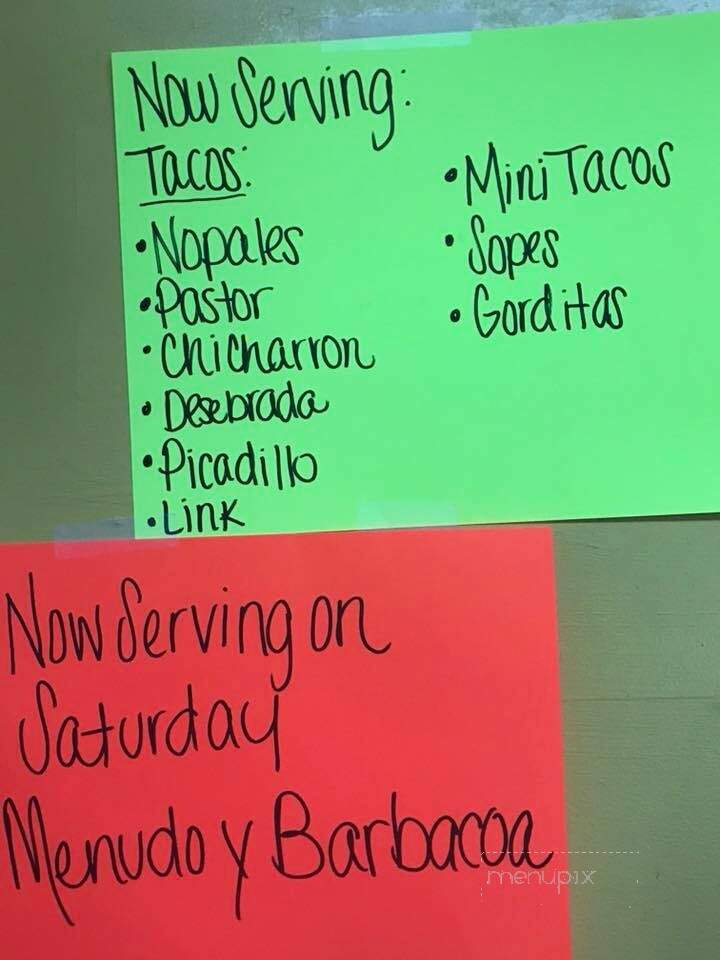 Now Serving:
Tacos:
• Nopales
• Pastor
• Chicharron
• Desebrada
• Picadillo
• Link
• Mini Tacos
• Sopes
• Gorditas
Now Serving on
Saturday
Menudo y Barbacoa
menupix